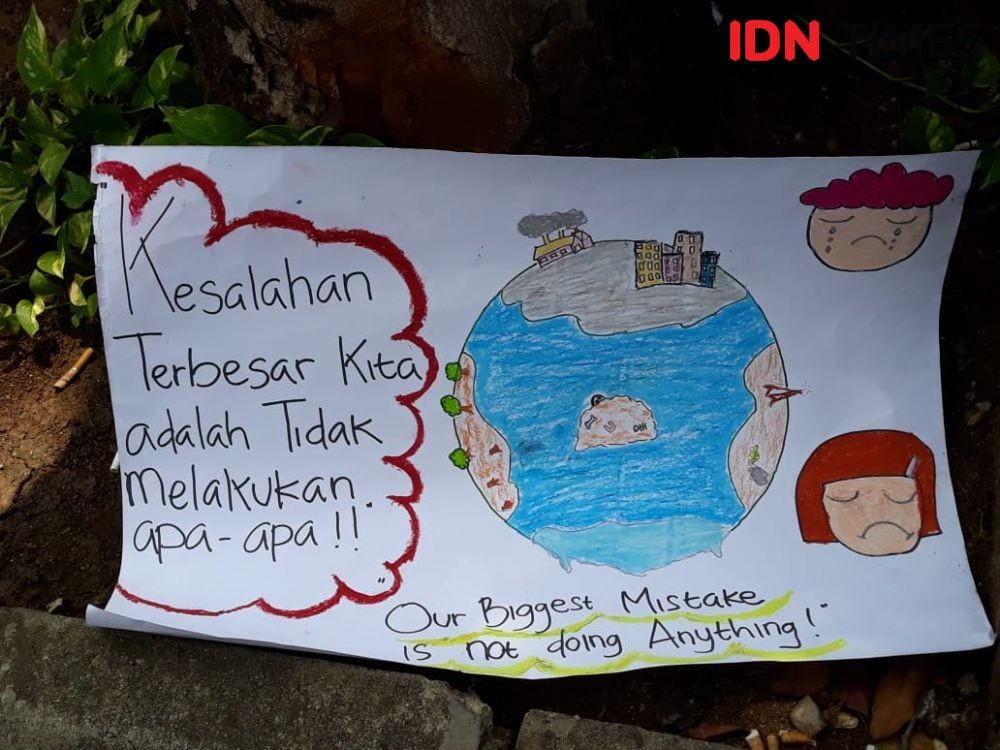 IDN TIMES
"Kesalahan
Terbesar Kita
adalah Tidak
Melakukan.
apa-apa!!"
Our Biggest Mistake
is not doing Anything!"